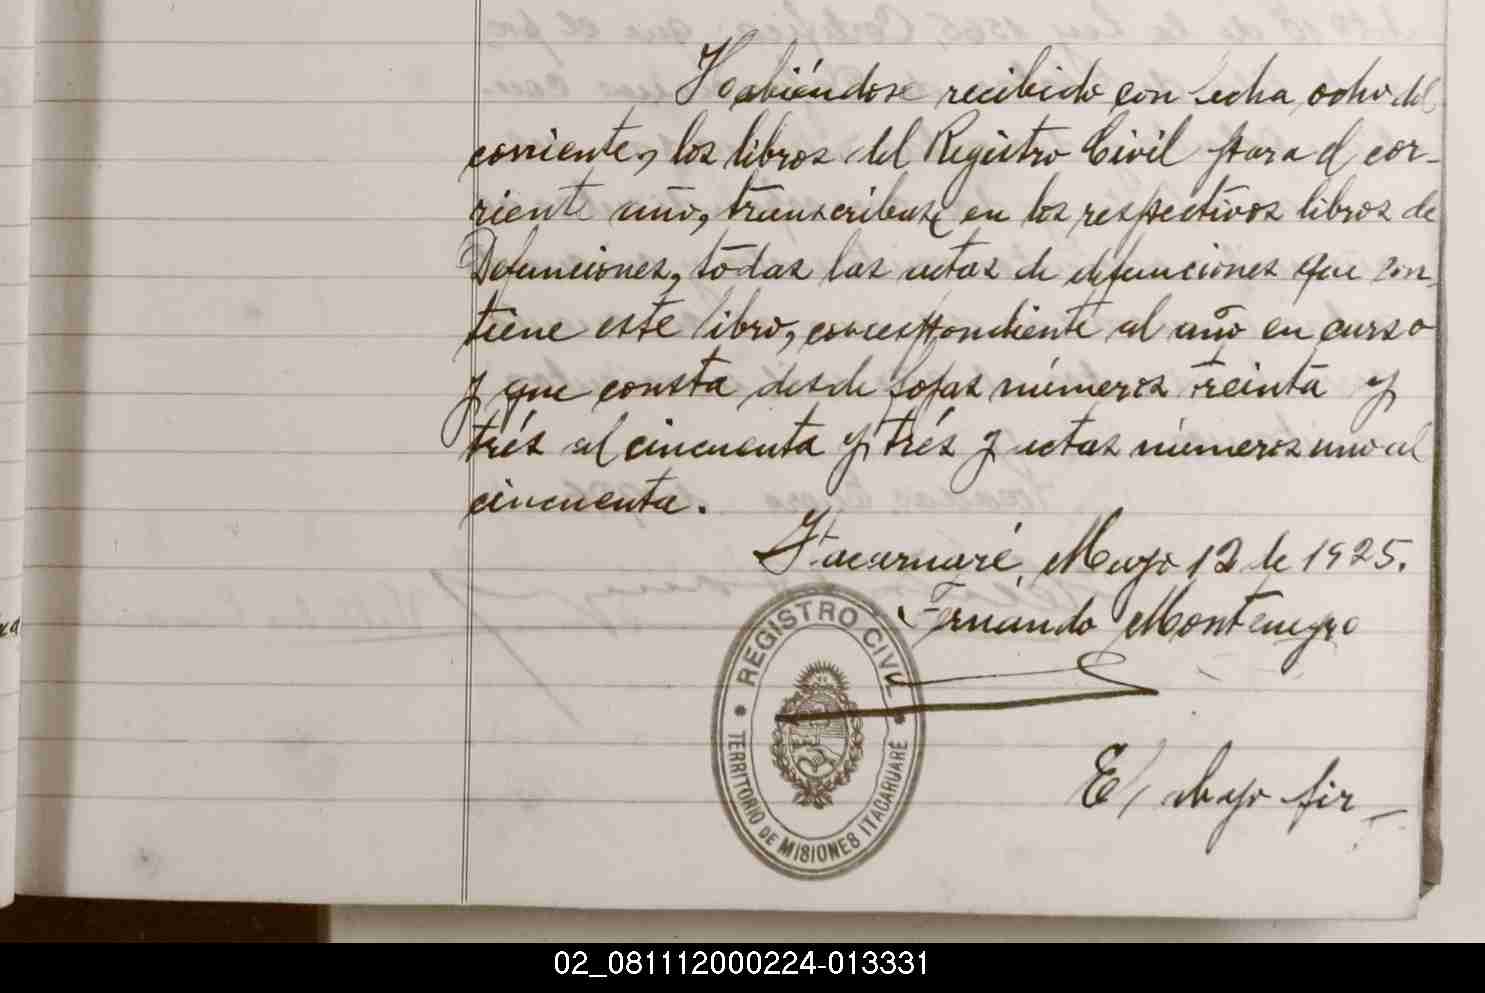 Habiéndose recibido con fecha ocho del
corriente, los libros del Registro Civil para el cor-
riente año, transcribase en los respectivos libros de
Defunciones, todas las actas de defunciones que con-
tiene este libro, correspondiente al año en curso
y que consta desde fojas números treinta y
trés al cincuenta y trés y actas números uno al
cincuenta.
Itacaruaré, Mayo 12 de 1925.
Fernando Montenegro
REGISTRO CIVIL
TERRITORIO DE MISIONES ITACARUARÉ
El abajo fir-
02_081112000224-013331